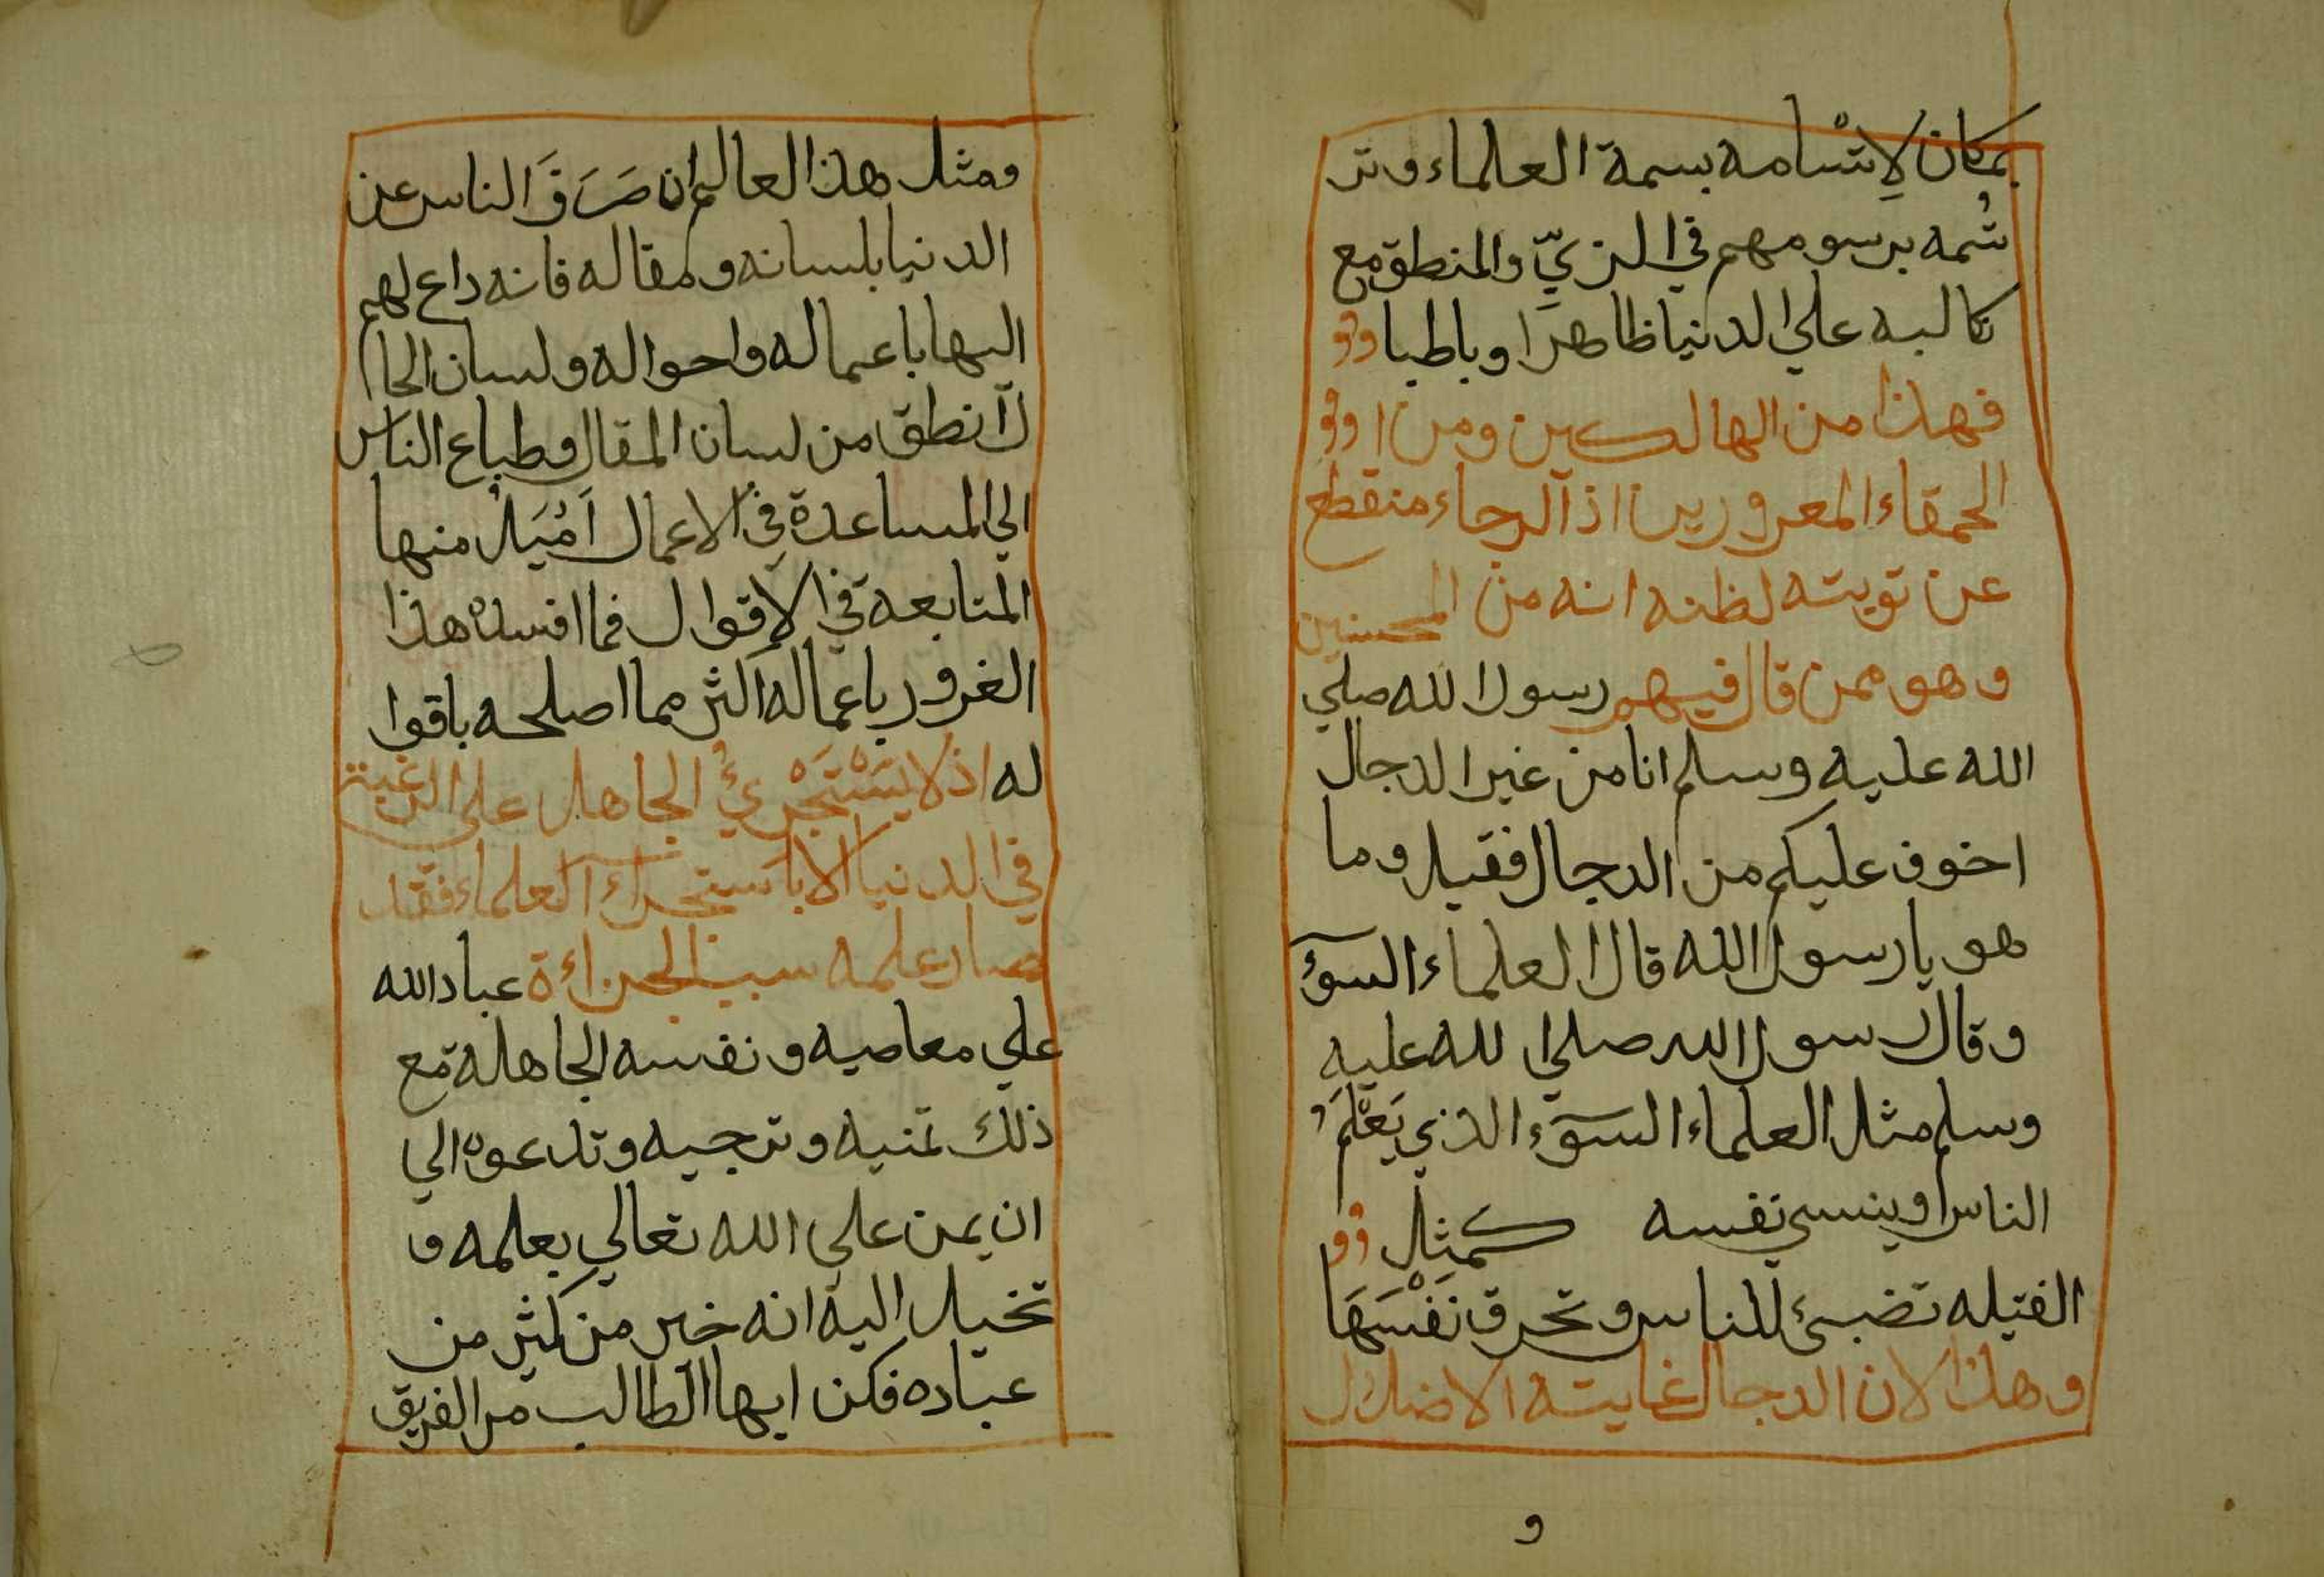 بمكان لاِتْسامه بسمة العلماء وتر
سُمه برسومهم في الزيّ والمنطق مع
تكالبه علي الدنيا ظاهرا وباطبا
فهذا من الهالكين ومن ا
الحمقاء المعرورين اذ الرجاء منقطع
عن توبته لظنه انه من المحسنين
وهو ممن قال فيهم رسول الله صلي
الله عليه وسلم انا من غير الدجال
اخوف عليكم من الدجال فقيل وما
هو يا رسول الله قال العلماء السوٓء
وقال رسول الله صلي الله عليه
وسلم مثل العلماء السوٓء الذي يَعْلَمُ
الناس وينسي نفسه كمثل
الفتيله تضيئ للناس وتحرق نَفْسَهَا
وهذا لان الدجال غايته الاضلال
و
ومثل هذا العالم ان صَرَفَ الناس عن
الدنيا بلسانه ومقاله فانه داع لهم
اليها باعماله واحواله ولسان الحا
ل انطق من لسان المقال وطباع الناس
الي المساعدة في الاعمال اَمْيَلُ منها
المتابعة في الاقوال فما افسده هذا
الغرور باعماله اكثر مما اصلحه باقوا
له اذ لا يَسْتَجْرِئُ الجاهل علي الرغبة
في الدنيا الا باستجراء العلماء فقد
صار علمه سبب الجراءة عباد الله
علي معاصيه ونفسه الجاهلة مع
ذلك تمنيه وترجيه وتدعوه الي
ان يمن علي الله تعالي بعلمه و
تخيل اليه انه خير من كثير من
عباده فكن ايها الطالب من الفريق